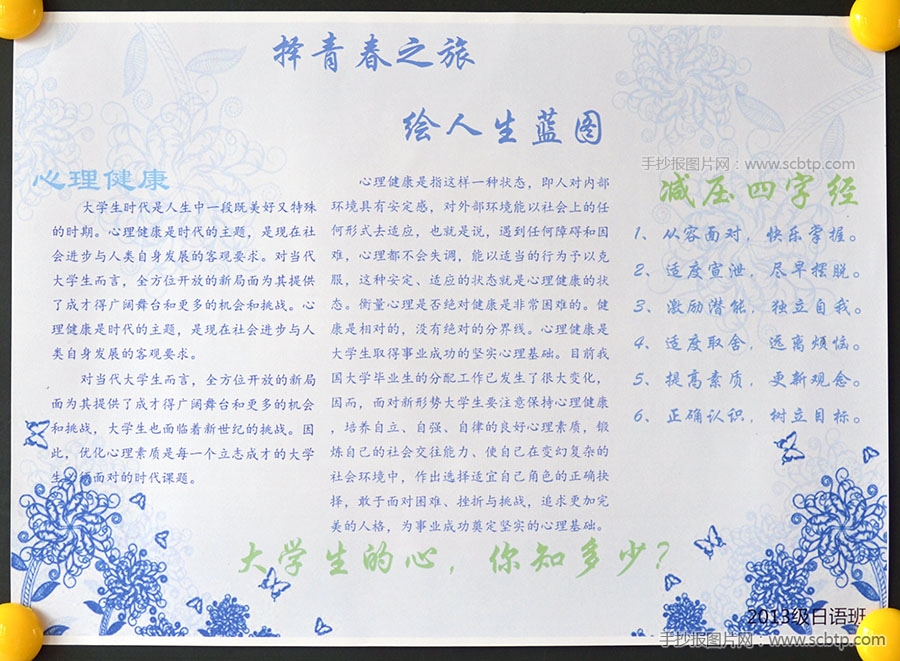 择青春之旅
绘人生蓝图
手抄报图片网：www.scbtp.com
心理健康
大学生时代是人生中一段既美好又特殊
的时期。心理健康是时代的主题，是现在社
会进步与人类自身发展的客观要求。对当代
大学生而言，全方位开放的新局面为其提供
了成才得广阔舞台和更多的机会和挑战。心
理健康是时代的主题，是现在社会进步与人
类自身发展的客观要求。
对当代大学生而言，全方位开放的新局
面为其提供了成才得广阔舞台和更多的机会
和挑战，大学生也面临着新世纪的挑战。因
此，优化心理素质是每一个立志成才的大学
生必须面对的时代课题。
心理健康是指这样一种状态，即人对内部
环境具有安定感，对外部环境能以社会上的任
何形式去适应，也就是说，遇到任何障碍和困
难，心理都不会失调，能以适当的行为予以克
服，这种安定、适应的状态就是心理健康的状
态。衡量心理是否绝对健康是非常困难的。健
康是相对的，没有绝对的分界线。心理健康是
大学生取得事业成功的坚实心理基础。目前我
国大学毕业生的分配工作已发生了很大变化，
因而，面对新形势大学生要注意保持心理健康
，培养自立、自强、自律的良好心理素质，锻
炼自己的社会交往能力、使自己在变幻复杂的
社会环境中，作出选择适宜自己角色的正确抉
择，敢于面对困难、挫折与挑战，追求更加完
美的人格，为事业成功奠定坚实的心理基础。
减压四字经
1、从容面对，快乐掌握。
2、适度宣泄，尽早摆脱。
3、激励潜能，独立自我。
4、适度取舍，远离烦恼。
5、提高素质，更新观念。
6、正确认识，树立目标。
大学生的心，你知多少？
2013级日语班
手抄报图片网：www.scbtp.com